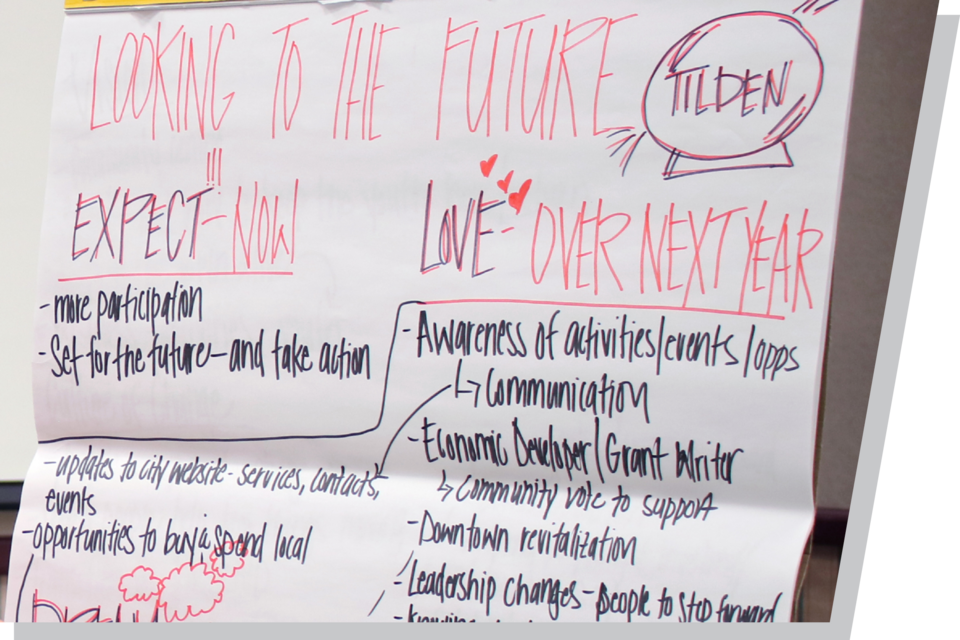 LOOKING TO THE FUTURE
TILDEN
!!!
EXPECT - NOW
- more participation
- Set for the future - and take action
LOVE - OVER NEXT YEAR
- Awareness of activities/events/opps
↳ Communication
- Economic Developer/Grant Writer
↳ Community vote to support
- Downtown revitalization
- Leadership changes - people to step forward
- updates to city website - services, contacts,
events
- opportunities to buy & spend local